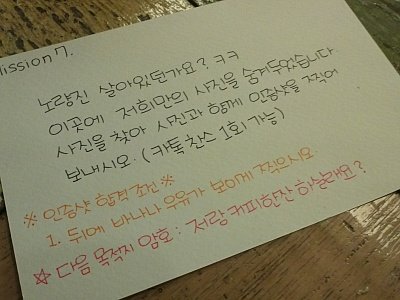 Mission 7.
노량진 살아있던가요? ㅋㅋ
이곳에 저희만의 사진을 숨겨두었습니다.
사진을 찾아 사진과 함께 인증샷을 찍어
보내시오. (카톡 찬스 1회 가능)
※ 인증샷 합격 조건 ※
1. 뒤에 바나나 우유가 보이게 찍으시오.
☆ 다음 목적지 암호 : 저랑 커피한잔 하실래요?